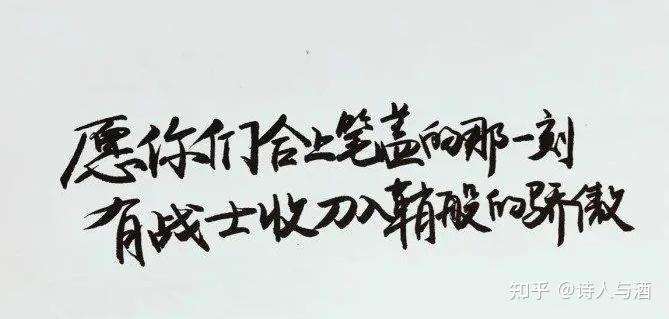 愿你们合上笔盖的那一刻
有战士收刀入鞘般的骄傲
知乎 @诗人与酒